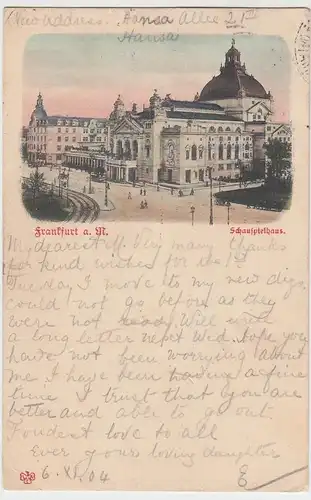 (New address. Hansa Allee 21II
Hansa
Frankfurt a. M.
Schauspielhaus.
My dearest Very many thanks
for kind wishes for the 1st
Tuesday I move to my new digs
could not go before as they
were not ready. Will write
a long letter next Wed. hope you
have not been worrying about
me I have been having a fine
time I trust that you are
better and able to go out.
Fondest love to all
Ever your loving daughter
6. XI. 04 E